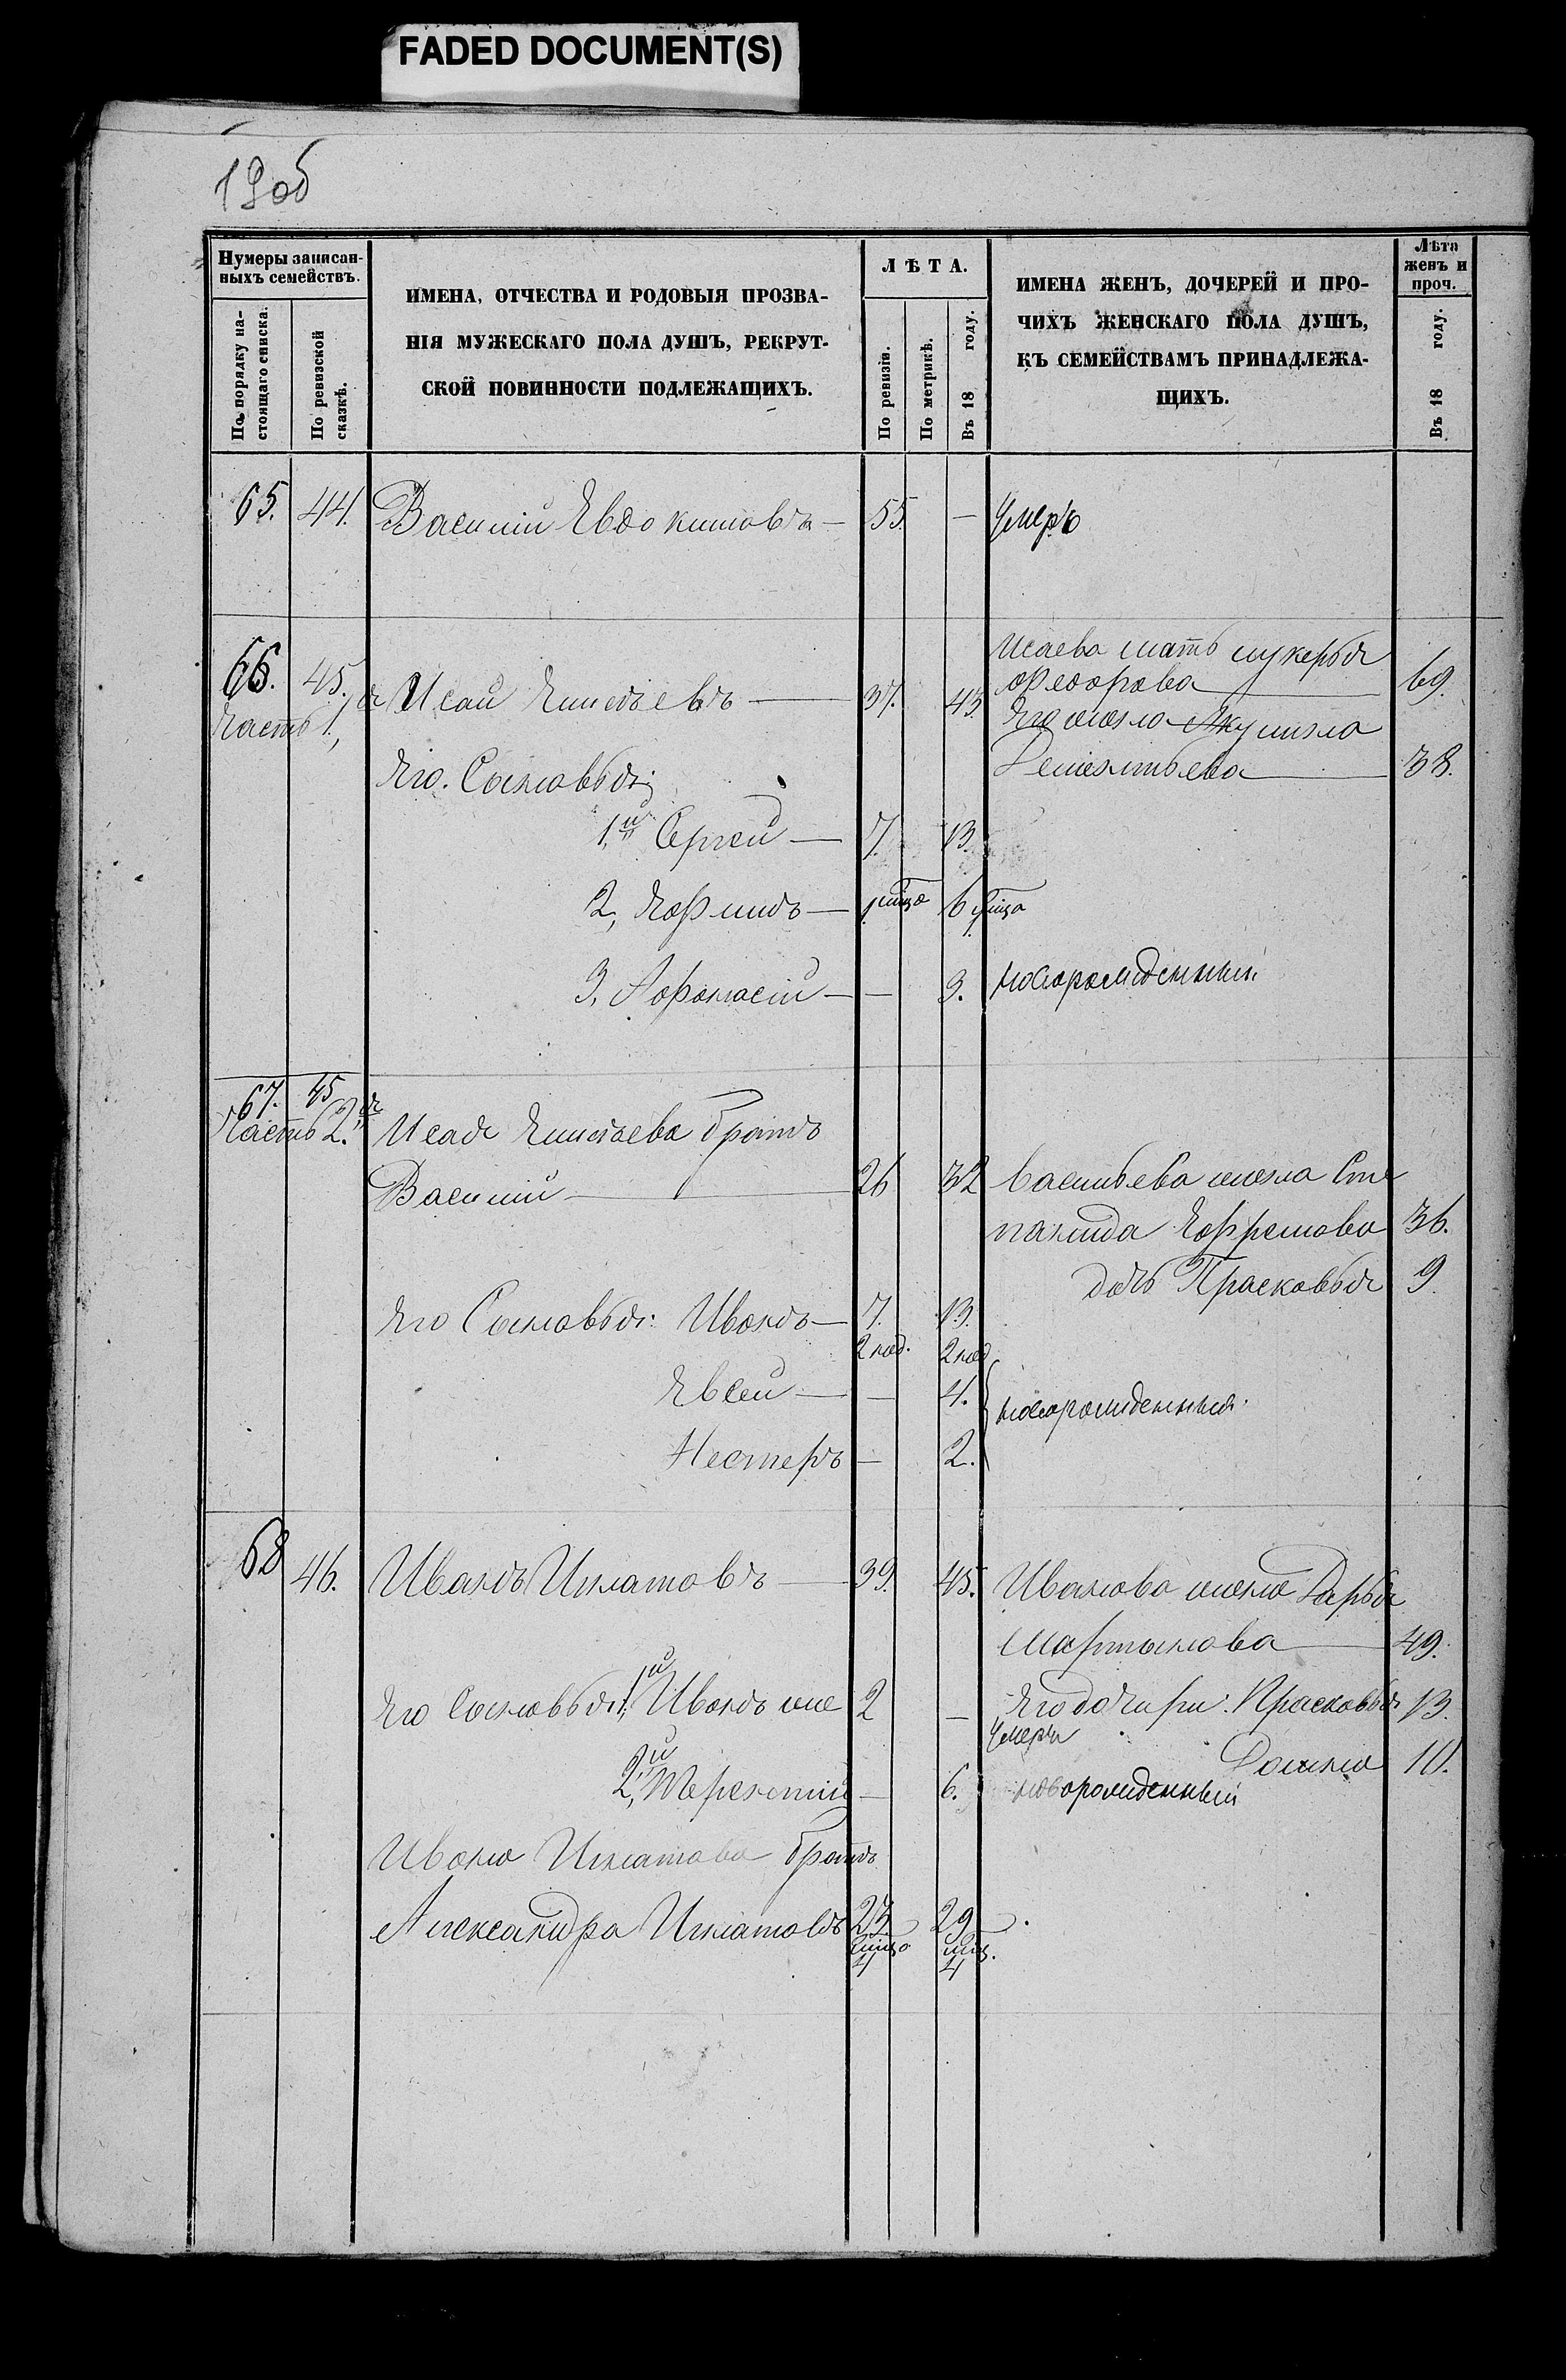 FADED DOCUMENT(S)
19об
Нумеры записан-
ныхъ семействъ.
По порядку на-
стоящаго списка.
По ревизской
сказкѣ.
ИМЕНА, ОТЧЕСТВА И РОДОВЫЯ ПРОЗВА-
НІЯ МУЖЕСКАГО ПОЛА ДУШЪ, РЕКРУТ-
СКОЙ ПОВИННОСТИ ПОДЛЕЖАЩИХЪ.
ЛѢТА.
По ревизіи.
По метрикѣ.
Въ 18 году.
ИМЕНА ЖЕНЪ, ДОЧЕРЕЙ И ПРО-
ЧИХЪ ЖЕНСКАГО ПОЛА ДУШЪ,
КЪ СЕМЕЙСТВАМЪ ПРИНАДЛЕЖА-
ЩИХЪ.
Лѣта
женъ и
проч.
Въ 18 году.
65. 44. Василій Евдокимовъ — 55. — Умеръ
Исаева мать Лукерья
Федорова 69.
66. 45. Исай Елисѣевъ — 37. 43.
Часть 1я
Его жена Акулина
Дементьева 38.
Его Сыновья:
1й Сергей — 7. 13.
2, Ефимъ — 1 мѣца 6 1 мѣца
3, Афанасій — — 3. новорожденный
67. 45
Часть 2я Исая Елисѣева братъ
Василій — 26 32 Васильева жена Сте
панида Ефремова 36.
дочь Прасковья 9
Его Сыновья: Иванъ — 7. 13.
2 пол. 2 пол
Евсей — — 4.
новорожденныя
Нестеръ — 2.
68 46. Иванъ Игнатовъ — 39. 45. Иванова жена Дарья
Мартынова 49.
Его Сыновья: 1й Иванъ же 2 — Его дочери: Прасковья 13.
Умеръ
Домна 10.
2й Терентій — 6. новорожденный
Ивана Игнатова братъ
Александра Игнатовъ 23 29
мѣца мѣц.
4 4